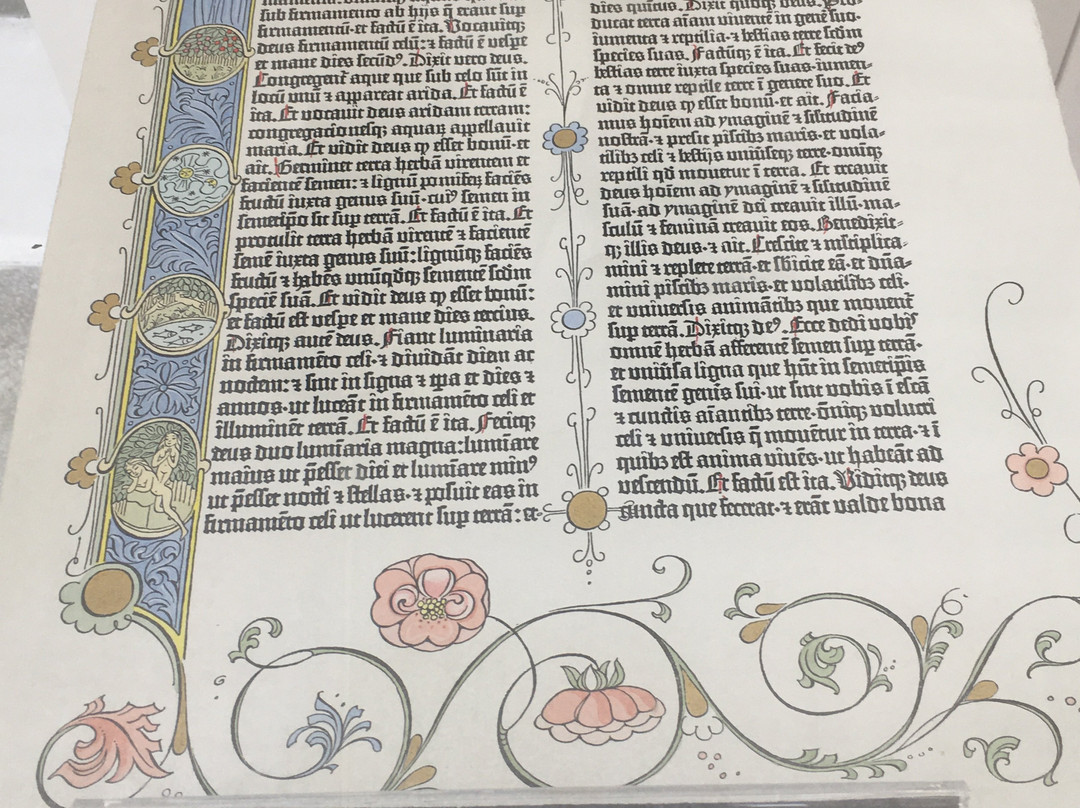 sub firmamento ab hijs q̄ erant sup
firmamentū·et factū ē ita. Vocauitqꝫ
deus firmamentū celū:⁊ factū ē vespe
et mane dies secūdꝰ. Dixit vero deus.
Congregent̄ aque que sub celo sūt in
locū vnū ⁊ appareat arida. Et factū ē
ita. Et vocauit deus aridam terram:
congregacionesqꝫ aquaꝝ appellauit
maria. Et vidit deus ꝙ esset bonū·et
ait. Germinet terra herbā virentem et
facientē semen:⁊ lignū pomiferꝫ faciēs
fructū iuxta genus suū·cuiꝰ semen in
semetip̄o sit sup terrā. Et factū ē ita. Et
protulit terra herbā virentē ⁊ facientē
semē iuxta genus suū:lignūqꝫ faciēs
fructū ⁊ habēs vnūqdqꝫ sementē scdm
speciē suā. Et vidit deus ꝙ esset bonū:
et factū est vespe et mane dies tercius.
Dixitqꝫ autē deus. Fiant luminaria
in firmamēto celi·⁊ diuidāt diem ac
noctem:⁊ sint in signa ⁊ tpa et dies ⁊
annos·ut luceāt in firmamēto celi et
illuminēt terrā. Et factū ē ita. Fecitqꝫ
deus duo lumīaria magna:lumīare
maius ut p̄esset diei et lumīare minꝰ
ut p̄esset nocti ⁊ stellas·⁊ posuit eas in
firmamēto celi ut lucerent sup terrā:et
dies quintus. Dixit quoqꝫ deus. Pro-
ducat terra aīam viuentē in genē suo·
iumenta ⁊ reptilia·⁊ bestias terre scdm
species suas. Factūqꝫ ē ita. Et fecit deꝰ
bestias terre iuxta species suas·iumen-
ta ⁊ omne reptile terre ī genere suo. Et
vidit deus ꝙ esset bonū·et ait. Facia-
mus hoīem ad ymaginē ⁊ silitudinē
nostrā·⁊ presit piscibꝫ maris·et vola-
tilibꝫ celi ⁊ bestijs vniūseqꝫ terre·omīqꝫ
reptili qd mouetur ī terra. Et creauit
deus hoīem ad ymaginē ⁊ silitudinē
suā·ad ymaginē dei creauit illū·ma-
sculū ⁊ feminā creauit eos. Benedixit-
qꝫ illis deus·⁊ ait. Crescite ⁊ mltiplica-
mini ⁊ replete terrā·et sbicite eā·et dña-
mini piscibꝫ maris·et volatilibꝫ celi·
et vniuersis animātibꝫ que mouent̄
sup terrā. Dixitqꝫ deꝰ. Ecce dedi vobis
omnē herbā afferentē semen sup terrā·
et vniūsa ligna que hñt in semetip̄is
sementē genis sui·ut sint vobis ī escā
⁊ cunctis aīantibꝫ terre·oīniqꝫ volucri
celi ⁊ vniuersis q̄ mouētur in terra·⁊ ī
quibꝫ est anima viuēs·ut habeāt ad
vescendū. Et factū est ita. Viditqꝫ deus
cuncta que fecerat·⁊ erāt valde bona